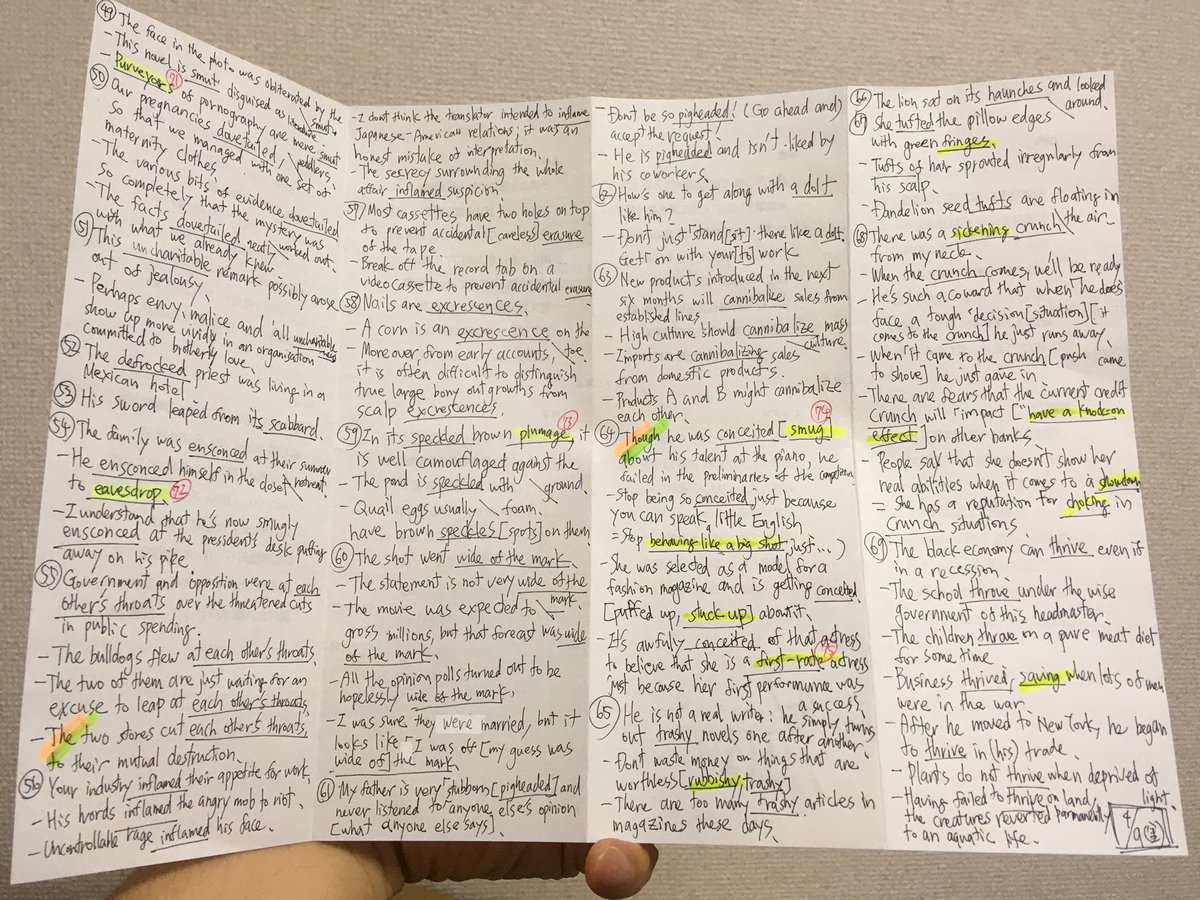 ㊾ The face in the photo was obliterated by the
smut.
- This novel is smut disguised as literature.
- Purveyors 71 of pornography are mere smut
peddlers.
㊿ Our pregnancies dovetailed,
so that we managed with one set of
maternity clothes.
- The various bits of evidence dovetailed
so completely that the mystery was
worked out.
- The facts dovetailed neatly
with what we already knew
51 This uncharitable remark possibly arose
out of jealousy.
- Perhaps envy, malice and all uncharitableness
show up more vividly in an organisation
committed to brotherly love.
52 The defrocked priest was living in a
Mexican hotel.
53 His sword leaped from its scabbard.
54 The family was ensconced at their summer
retreat.
- He ensconced himself in the closet
to eavesdrop. 72
- I understand that he's now smugly
ensconced at the president's desk putting
away on his pipe.
55 Government and opposition were at each
other's throats over the threatened cuts
in public spending.
- The bulldogs flew at each other's throats.
- The two of them are just waiting for an
excuse to leap at each other's throats.
- The two stores cut each other's throats,
to their mutual destruction.
56 Your industry inflamed their appetite for work.
- His words inflamed the angry mob to riot.
- Uncontrollable rage inflamed his face.
- I don't think the translator intended to inflame
Japanese-American relations; it was an
honest mistake of interpretation.
- The secrecy surrounding the whole
affair inflamed suspicion.
57 Most cassettes have two holes on top
to prevent accidental [careless] erasure
of the tape.
- Break off the record tab on a
video cassette to prevent accidental erasure
58 Nails are excresences.
- A corn is an excrescence on the
toe.
- Moreover from early accounts,
it is often difficult to distinguish
true large bony outgrowths from
scalp excrestences.
59 In its speckled brown plumage, 73 it
is well camouflaged against the
ground.
- The pond is speckled with
foam.
- Quail eggs usually
have brown speckles [spots] on them
60 The shot went wide of the mark.
- The statement is not very wide of the
mark.
- The movie was expected to
gross millions, but that forecast was wide
of the mark.
- All the opinion polls turned out to be
hopelessly wide of the mark.
- I was sure they were married, but it
looks like I was off [my guess was
wide of] the mark.
61 My father is very stubborn [pigheaded] and
never listened to anyone else's opinion
[what anyone else says].
- Don't be so pigheaded! (Go ahead and)
accept the request!
- He is pigheaded and isn't liked by
his coworkers.
62 How's one to get along with a dolt
like him?
- Don't just [stand[sit] there like a dolt.
Get on with your [to] work
63 New products introduced in the next
six months will cannibalize sales from
established lines.
- High culture should cannibalize mass
culture.
- Imports are cannibalizing sales
from domestic products.
- Products A and B might cannibalize
each other.
64 Though he was conceited [smug] 74
about his talent at the piano, he
failed in the preliminaries of the competition
- Stop being so conceited just because
you can speak little English
= Stop behaving like a big shot just...)
- She was selected as a model for a
fashion magazine and is getting conceited
[puffed up, stuck up] about it.
- It's awfully conceited of that actress
to believe that she is a first-rate 75 actress
just because her first performance was
a success.
65 He is not a real writer: he simply turns
out trashy novels one after another.
- Don't waste money on things that are
worthless [rubbishy, trashy]
- There are too many trashy articles in
magazines these days.
66 The lion sat on its haunches and looked
around.
67 She tufted the pillow edges
with green fringes.
- Tufts of hair sprouted irregularly from
his scalp.
- Dandelion seed tufts are floating in
the air.
68 There was a sickening crunch
from my neck.
- When the crunch comes, we'll be ready
- He's such a coward that when he does
face a tough decision [situation] [it
comes to the crunch] he just runs away.
- When it came to the crunch [push came
to shove] he just gave in
- There are fears that the current credit
crunch will impact ["have a knock-on
effect] on other banks.
- People say that she doesn't show her
real abilities when it comes to a showdown
= She has a reputation for choking in
crunch situations
69 The black economy can thrive even if
in a recession.
- The school throve under the wise
government of this headmaster.
- The children thrave on a pure meat diet
for some time
- Business thrived, when lots of men
were in the war.
- After he moved to New York, he began
to thrive in (his) trade.
- Plants do not thrive when deprived of
light.
- Having failed to thrive on land,
the creatures reverted permanently
to an aquatic life.
4/9